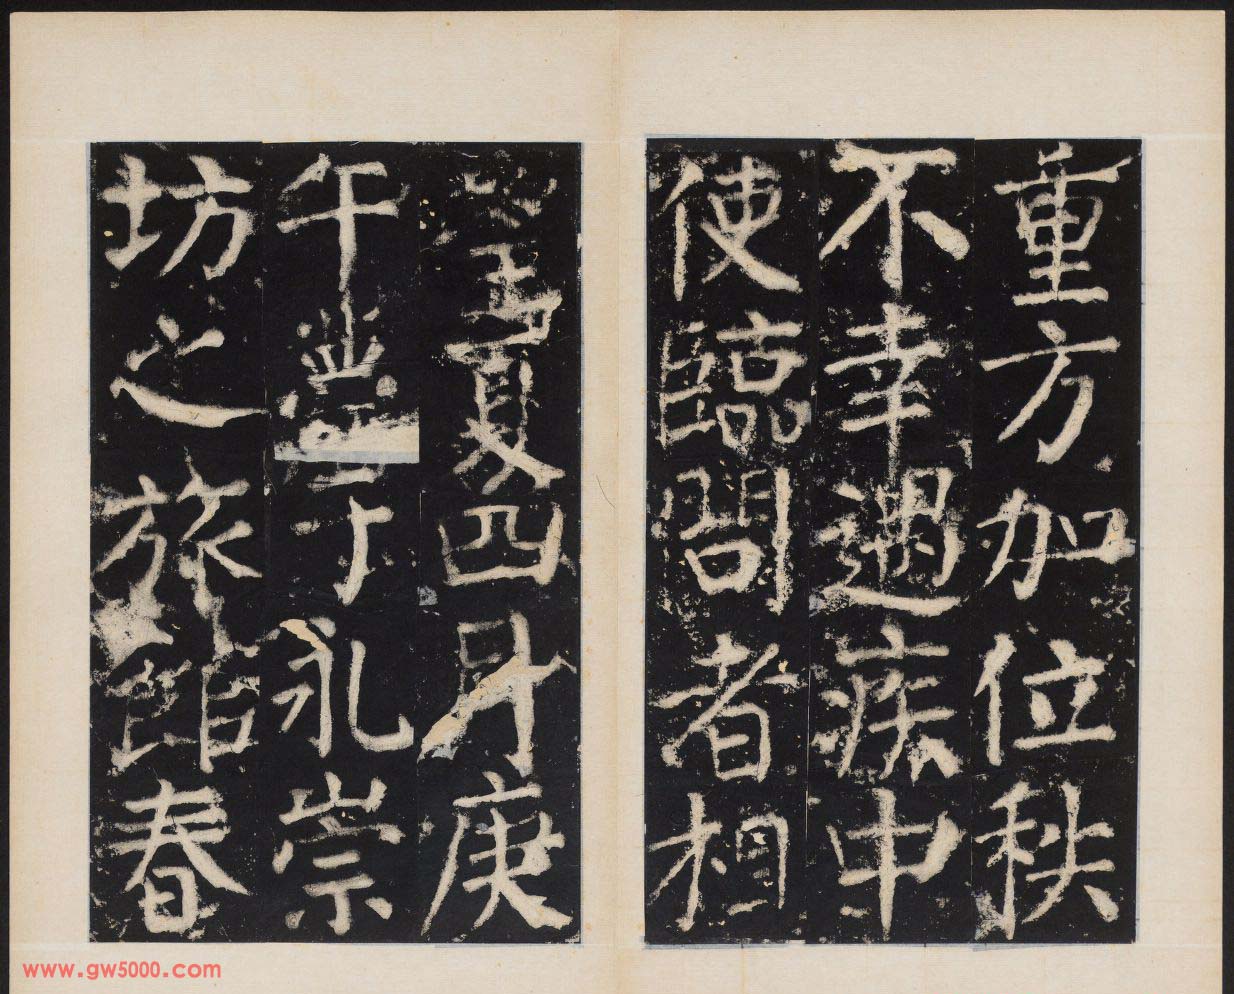 重方加位秩
不幸遇疾中
使臨問者相
望夏四月庚
午薨于永崇
坊之旅館春
www.gw5000.com